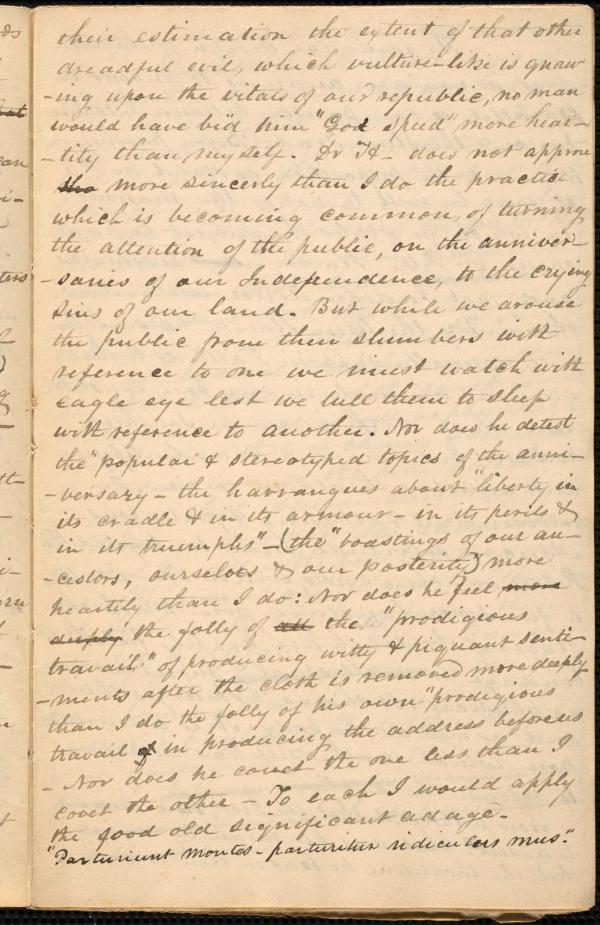 their estimation the extent of that other
dreadful evil, which vulture-like is gnaw
-ing upon the vitals of our republic, no man
would have bid him "God speed" more hear-
-tily than myself. Dr "H- does not approve
tho more sincerely than I do the practice
which is becoming common, of turning
the attention of the public, on the anniver-
-saries of our Independence, to the crying
sins of our land. But while we arouse
the public from their slumbers with
reference to one we must watch with
eagle eye lest we lull them to sleep
with reference to another. Nor does he detest
the "popular & stereotyped topics of the anni-
-versary - the harrangues about "liberty in
its cradle & in its armour - in its perils &
in its triumphs" - (the "boastings of our an-
-cestors, ourselves & our posterity) more
heartily than I do: Nor does he feel more
deeply the folly of all the "prodigious
travail" of producing witty & piquant senti-
-ments after the cloth is removed more deeply
than I do the folly of his own "prodigious
travail of in producing the address before us
- Nor does he covet the one less than I
covet the other - To each I would apply
the good old significant adage.
"Parturiunt montes - parturitur ridiculus mus."